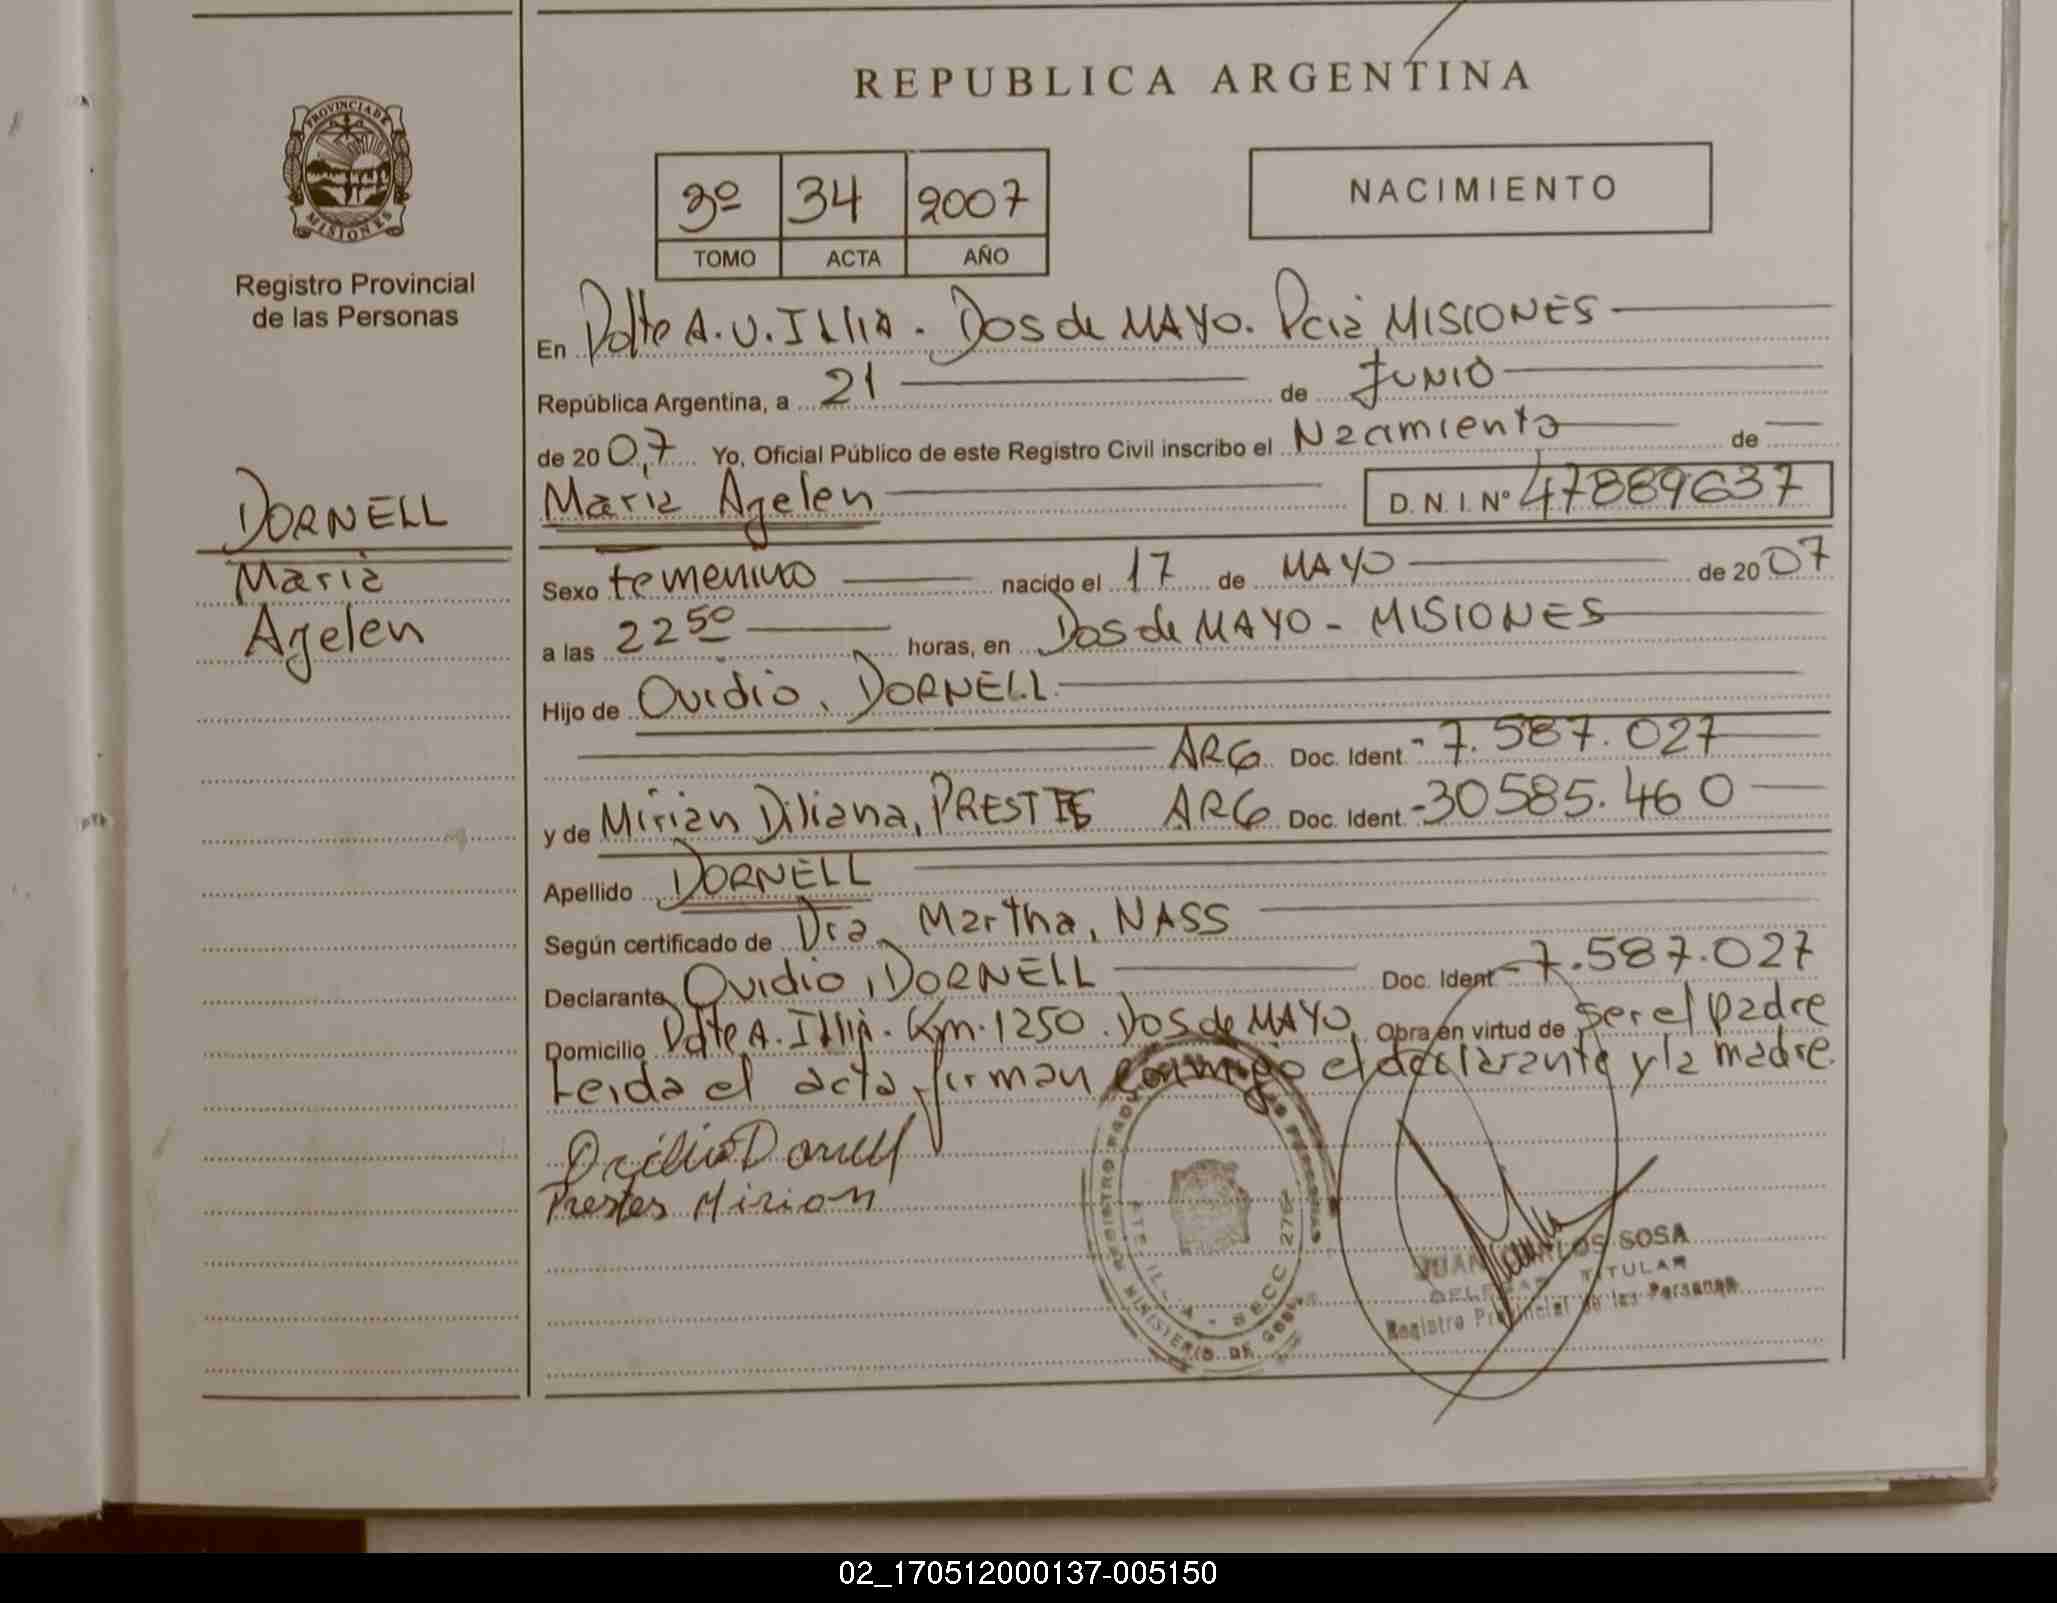 REPUBLICA ARGENTINA
PROVINCIA DE
MISIONES
Registro Provincial
de las Personas
3º 34 2007
TOMO ACTA AÑO
NACIMIENTO
En Ddte A.U. ILLIA. Dos de MAYO. Pcia MISIONES
República Argentina, a 21 de JUNIO
de 2007 Yo, Oficial Público de este Registro Civil inscribo el Nacimiento de
Maria Agelen D.N.I. Nº 47889637
DORNELL
Maria
Agelen
Sexo femenino nacido el 17 de MAYO de 2007
a las 22 50 horas, en Dos de MAYO - MISIONES
Hijo de Ovidio, DORNELL
ARG Doc. Ident. - 7.587.027
y de Mirian Diliana, PRESTES ARG Doc. Ident. - 30585.460
Apellido DORNELL
Según certificado de Dra Martha, NASS
Declarante Ovidio, DORNELL Doc. Ident - 7.587.027
Domicilio Ddte A. Illia. Km. 1250. Dos de MAYO, Obra en virtud de ser el padre
Leida el acta, firman conmigo el declarante y la madre.
Dornell
Prestes Mirian
REGISTRO DE LAS PERSONAS
MINISTERIO DE GOB.
SECC 276
JUAN CARLOS SOSA
DELEGADO TITULAR
Registro Provincial de las Personas
02_170512000137-005150